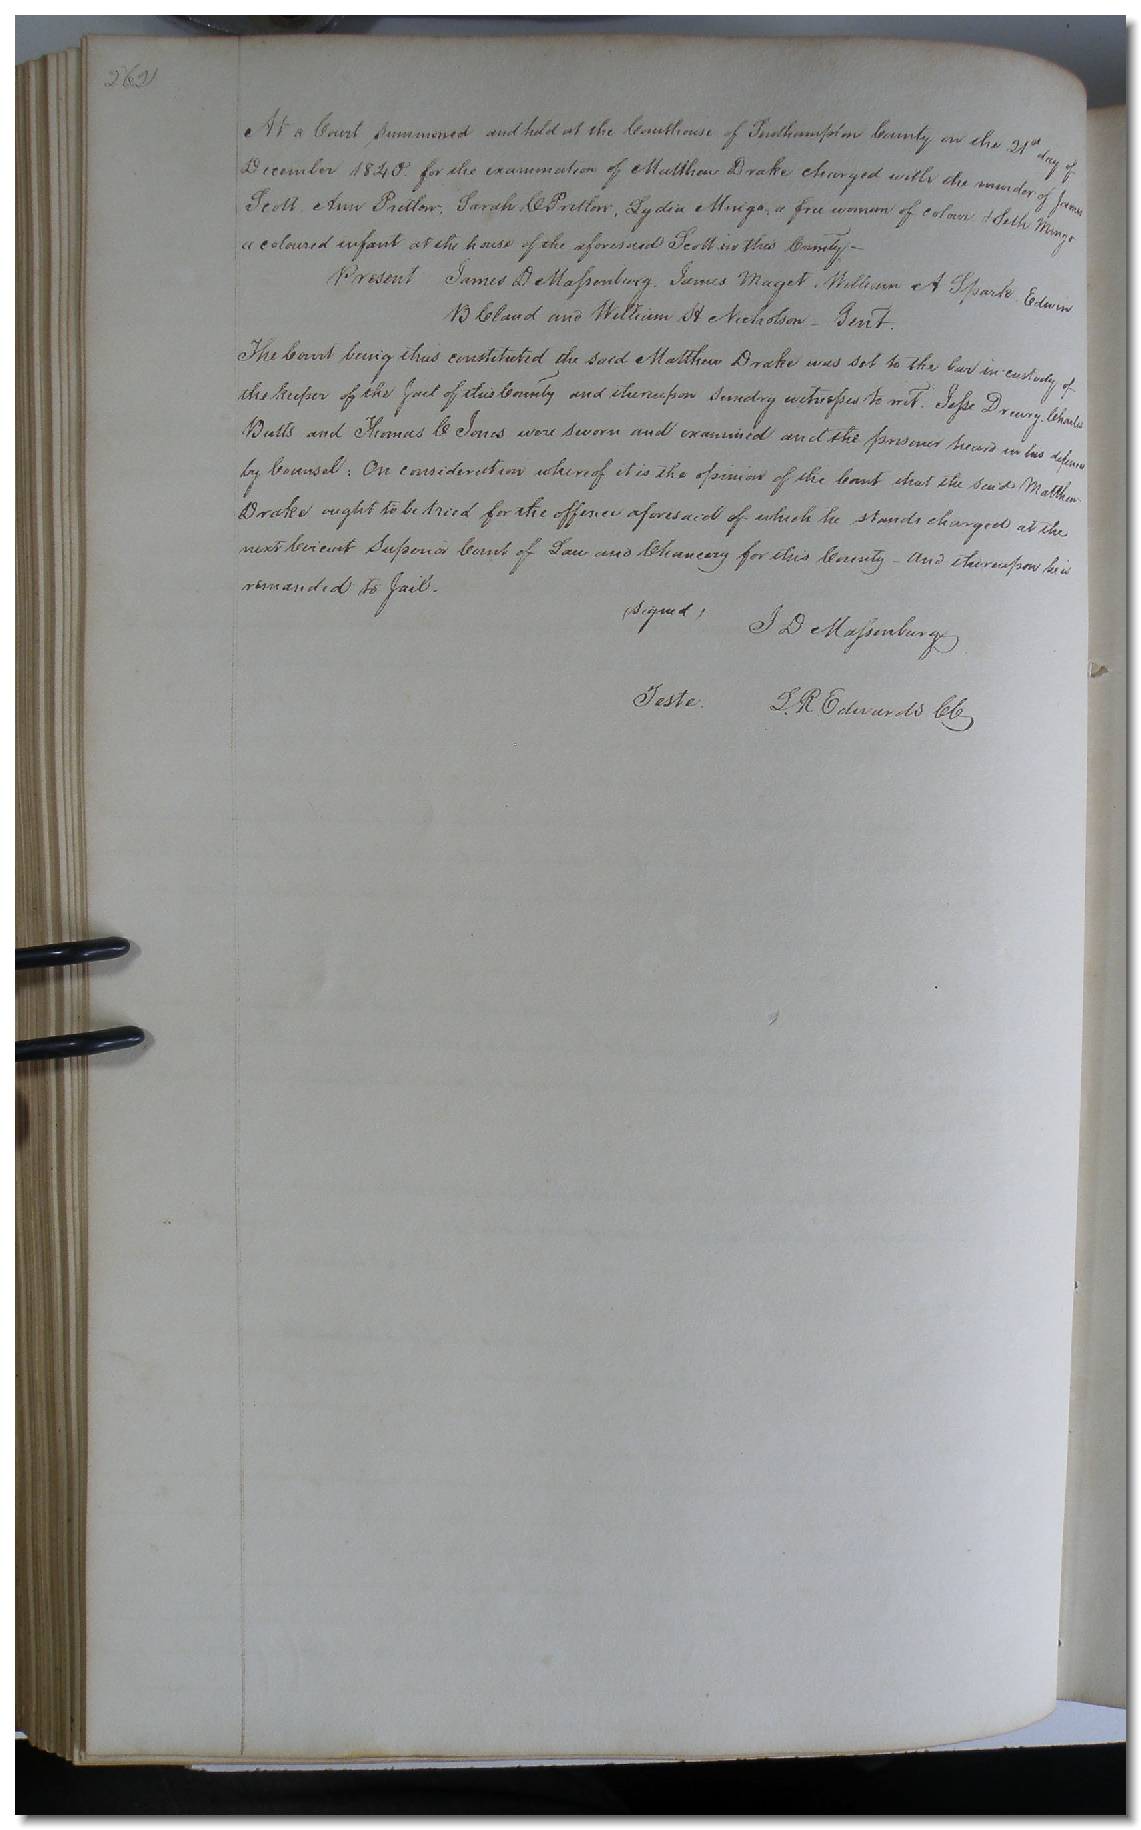 262
At a Court summoned and held at the Courthouse of Southampton County on the 21st day of
December 1840. for the examination of Matthew Drake charged with the murder of James
Scott. Ann Pretlow, Sarah C Pretlow, Lydia Mingo, a free woman of colour & Seth Mingo
a coloured infant at the house of the aforesaid Scott in this County—
Present James D Massenburg. James Maget. William A Spark. Edwin
B Claud and William H Nicholson — Gent.
The Court being thus constituted the said Matthew Drake was set to the bar in custody of
the keeper of the Jail of this County and thereupon sundry witnesses to wit. Jesse Drewry, Charles
Butts and Thomas C Jones were sworn and examined and the prisoner heard in his defence
by Counsel: On consideration whereof it is the opinion of the Court that the said Matthew
Drake ought to be tried for the offence aforesaid of which he stands charged at the
next Circuit Superior Court of Law and Chancery for this County — And thereupon he is
remanded to Jail.
(signed) J D Massenburg
Teste. L. R Edwards CC